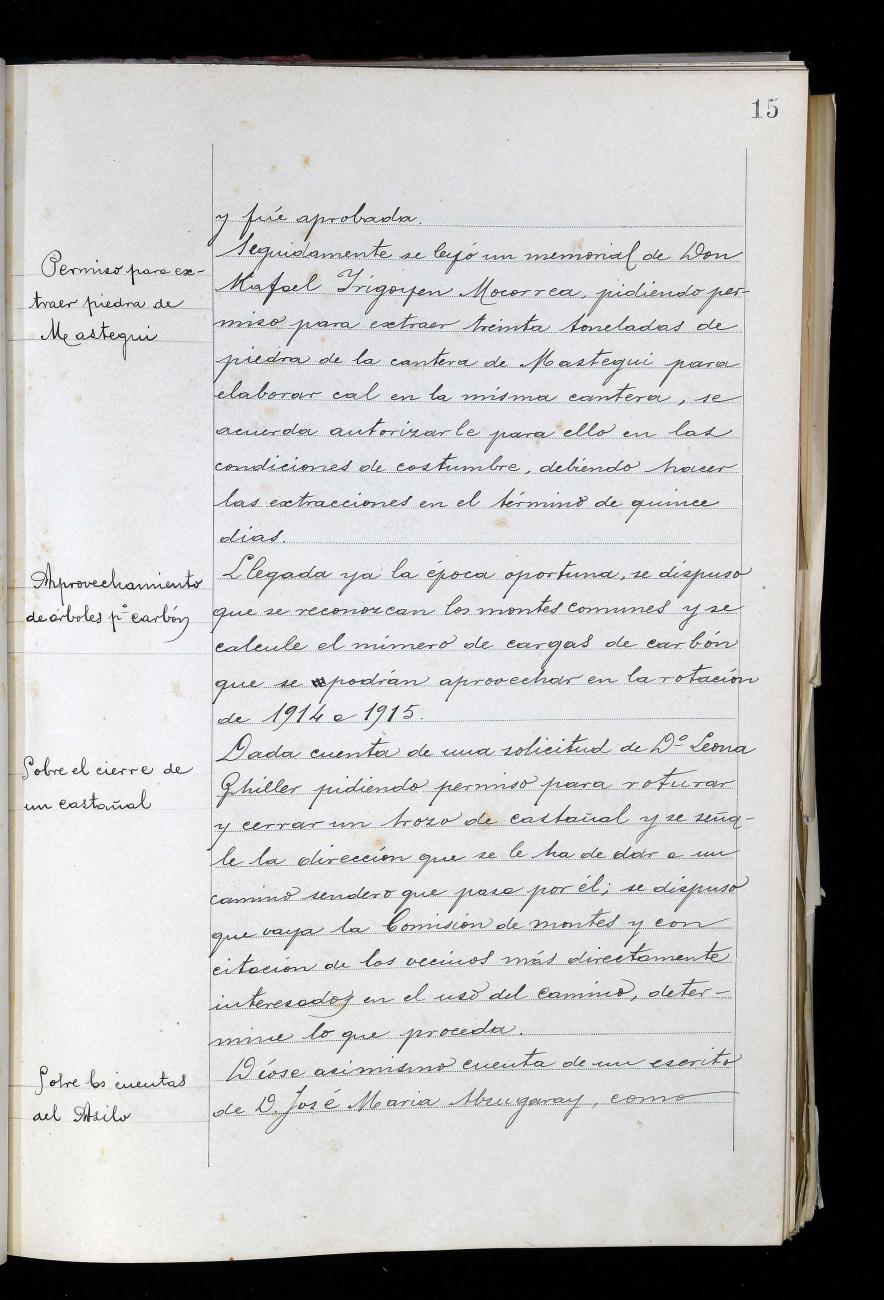 15
y fué aprobada.
Permiso para ex-
traer piedra de
Mastegui
Seguidamente se leyó un memorial de Don
Rafael Irigoyen Mocorrea, pidiendo per-
miso para extraer treinta toneladas de
piedra de la cantera de Mastegui para
elaborar cal en la misma cantera, se
acuerda autorizarle para ello en las
condiciones de costumbre, debiendo hacer
las extracciones en el término de quince
dias.
Aprovechamiento
de árboles pª carbón
Llegada ya la época oportuna, se dispuso
que se reconozcan los montes comunes y se
calcule el número de cargas de carbón
que se podrán aprovechar en la rotación
de 1914 a 1915.
Sobre el cierre de
un castañal
Dada cuenta de una solicitud de Dª Leona
Ghiller pidiendo permiso para roturar
y cerrar un trozo de castañal y se seña-
le la dirección que se le ha de dar a un
camino sendero que pasa por él; se dispuso
que vaya la Comisión de montes y con
citación de los vecinos más directamente
interesados en el uso del camino, deter-
mine lo que proceda.
Sobre las cuentas
del Asilo
Dióse asimismo cuenta de un escrito
de D. José Maria Abzugaray, como